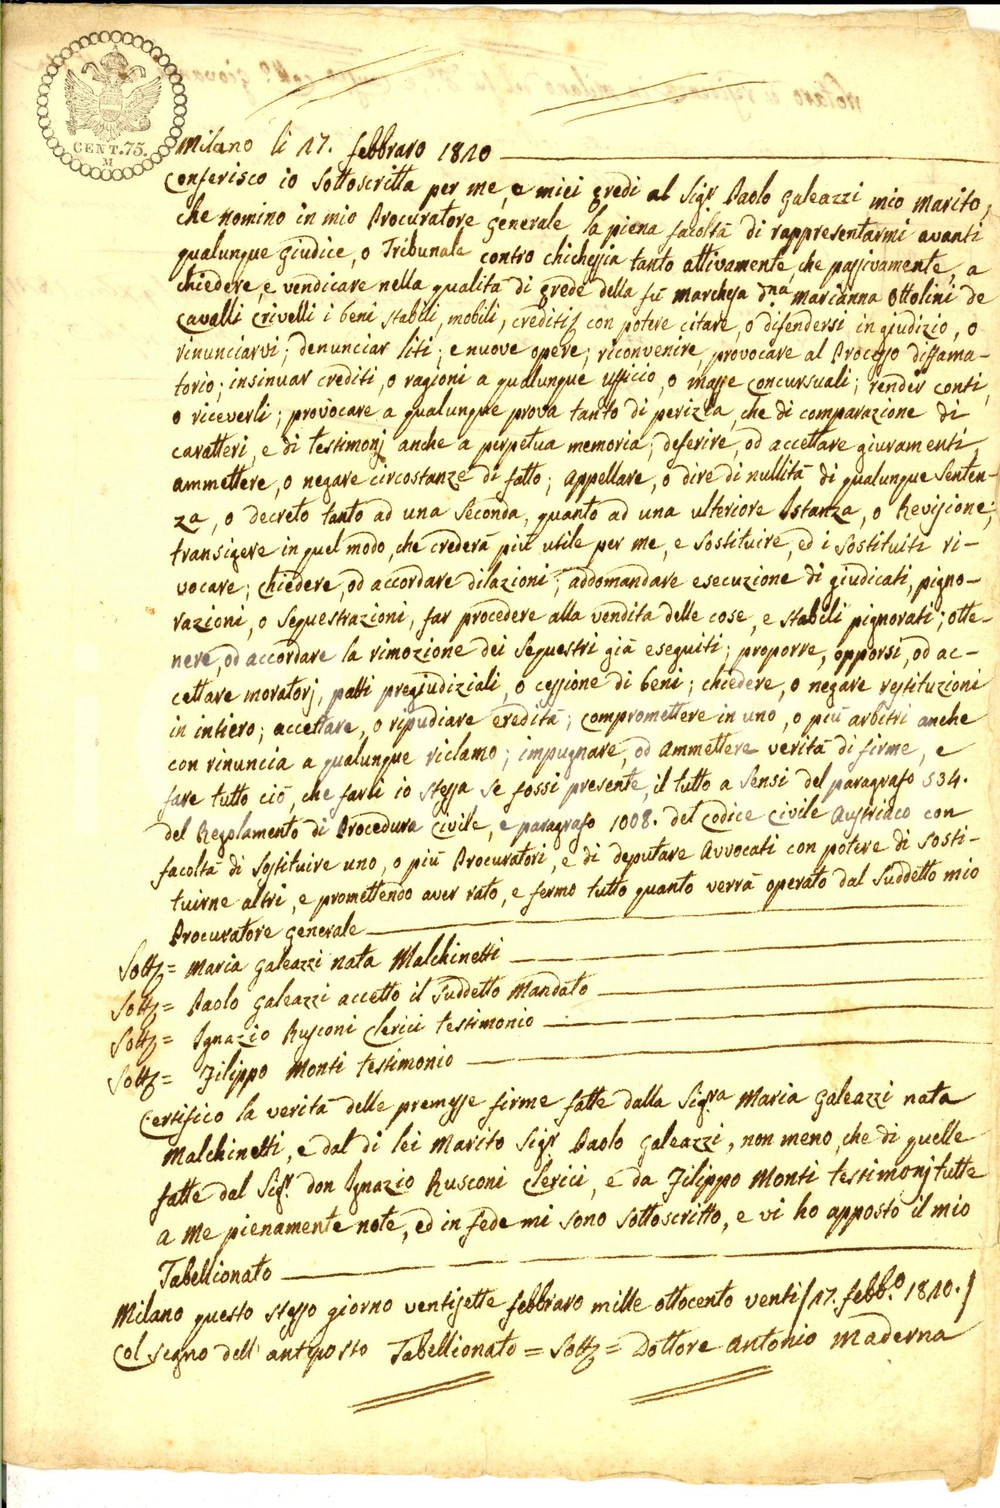 CENT. 75.
M
Milano li 27. febbraro 1820
Conferisco io Sottoscritta per me, e miei eredi al Sig.r Paolo Galeazzi mio Marito,
che nomino in mio Procuratore Generale la piena facoltà di rappresentarmi avanti
qualunque Giudice, o Tribunale contro chichessia tanto attivamente, che passivamente, a
chiedere, e vendicare nella qualità di Erede della fù Marchesa D.na Marianna Ottolini de
Cavalli Crivelli i beni stabili, mobili, crediti con potere citare, o difendersi in giudizio, o
rinunciarvi; denunciar liti; e nuove opere; riconvenire, provocare al Processo diffama-
torio; insinuar crediti, o ragioni a qualunque Ufficio, o Masse Concursuali; render conti,
o riceverli; provocare a qualunque prova tanto di perizia, che di comparazione di
caratteri, e di testimonj anche a perpetua memoria; deferire, od accettare giuramenti,
ammettere, o negare circostanze di fatto; appellare, o dire di nullità di qualunque Senten-
za, o decreto tanto ad una Seconda, quanto ad una ulteriore Istanza, o Revisione;
transigere in quel modo, che crederà più utile per me, e sostituire, ed i sostituiti ri-
vocare; chiedere, od accordare dilazioni; addomandare esecuzione di giudicati, pigno-
razioni, o sequestrazioni, far procedere alla vendita delle cose, e stabili pignorati; otte-
nere, od accordare la rimozione dei sequestri già eseguiti; proporre, opporsi, od ac-
cettare moratorj, patti pregiudiziali, o cessione di beni; chiedere, o negare restituzioni
in intiero; accettare, o ripudiare eredità; compromettere in uno, o più arbitri anche
con rinuncia a qualunque riclamo; impugnare, od ammettere verità di firme, e
fare tutto ciò, che farei io stessa se fossi presente, il tutto a sensi del paragrafo 534.
del Regolamento di Procedura Civile, e paragrafo 1008. del Codice Civile Austriaco con
facoltà di sostituire uno, o più Procuratori, e di deputare Avvocati con potere di sosti-
tuirne altri, e promettendo aver rato, e fermo tutto quanto verrà operato dal suddetto mio
Procuratore Generale
Sott. = Maria Galeazzi nata Malchinetti
Sott. = Paolo Galeazzi accetto il suddetto Mandato
Sott. = Ignazio Rusconi Clerici testimonio
Sott. = Filippo Monti testimonio
Certifico la verità delle premesse firme fatte dalla Sig.ra Maria Galeazzi nata
Malchinetti, e dal di lei Marito Sig.r Paolo Galeazzi, non meno, che di quelle
fatte dal Sig.r don Ignazio Rusconi Clerici, e da Filippo Monti testimonj tutte
a me pienamente note, ed in fede mi sono sottoscritto, e vi ho apposto il mio
Tabellionato
Milano questo stesso giorno ventisette febbraro mille ottocento venti /27. febb.o 1820./
Col segno dell'antiposto Tabellionato = Sott. = Dottore Antonio Maderna